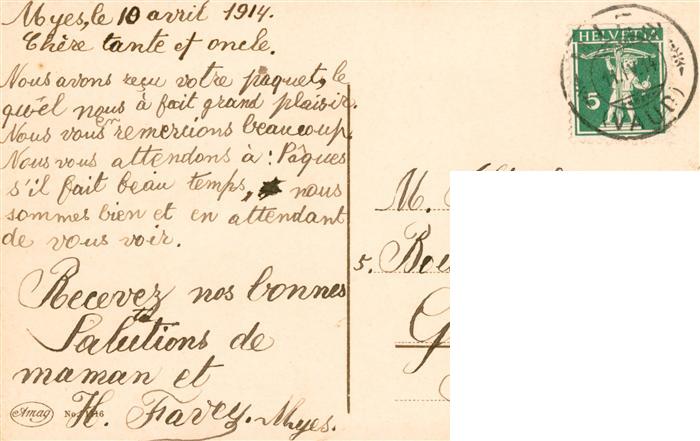 Myes, le 10 avril 1914.
Chère tante et oncle.
Nous avons reçu votre paquet, le
quél nous à fait grand plaisir.
Nous vous en remercions beaucoup.
Nous vous attendons à: Pâques
s'il fait beau temps, nous
sommes bien et en attendant
de vous voir.
Recevez nos bonnes
Salutations de
maman et
H. Favey. Myes.
Amag
No.
HELVETIA
5
(VAUD)
M.
5.